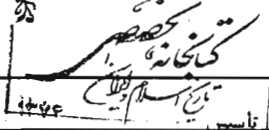 کتابخانه تخصصی
تاریخ اسلام و ایران
تأسیس